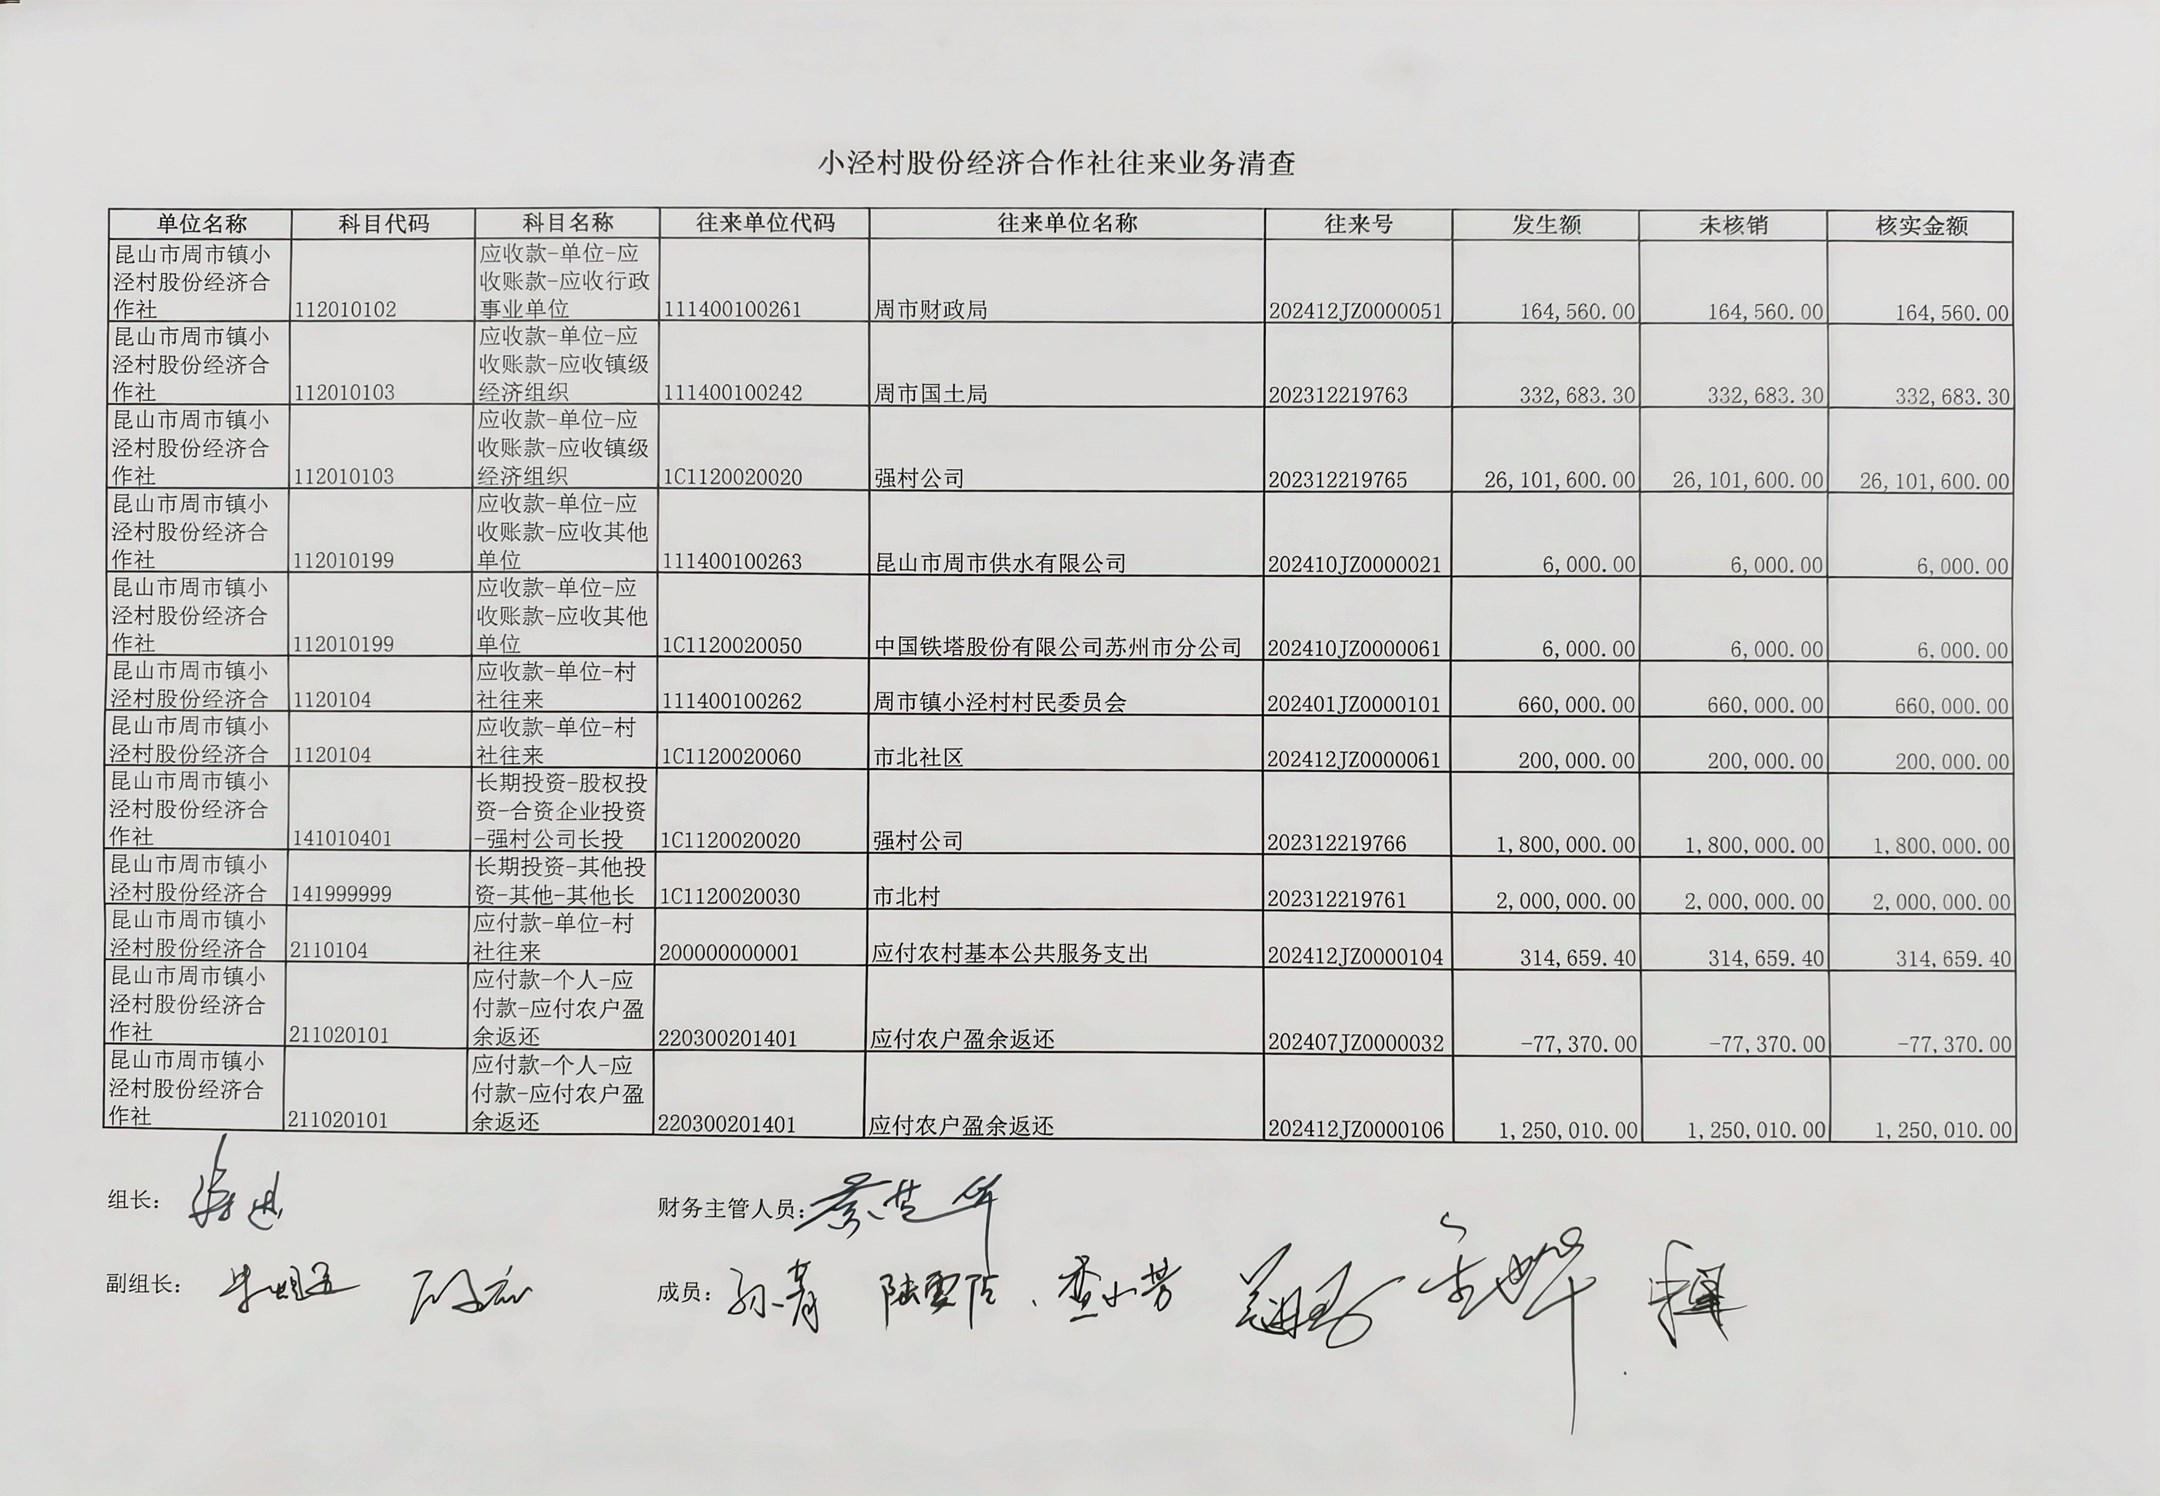 小泾村股份经济合作社往来业务清查
单位名称 科目代码 科目名称 往来单位代码 往来单位名称 往来号 发生额 未核销 核实金额
昆山市周市镇小 应收款-单位-应
泾村股份经济合 收账款-应收行政
作社 112010102 事业单位 111400100261 周市财政局 202412JZ0000051 164,560.00 164,560.00 164,560.00
昆山市周市镇小 应收款-单位-应
泾村股份经济合 收账款-应收镇级
作社 112010103 经济组织 111400100242 周市国土局 202312219763 332,683.30 332,683.30 332,683.30
昆山市周市镇小 应收款-单位-应
泾村股份经济合 收账款-应收镇级
作社 112010103 经济组织 1C1120020020 强村公司 202312219765 26,101,600.00 26,101,600.00 26,101,600.00
昆山市周市镇小 应收款-单位-应
泾村股份经济合 收账款-应收其他
作社 112010199 单位 111400100263 昆山市周市供水有限公司 202410JZ0000021 6,000.00 6,000.00 6,000.00
昆山市周市镇小 应收款-单位-应
泾村股份经济合 收账款-应收其他
作社 112010199 单位 1C1120020050 中国铁塔股份有限公司苏州市分公司 202410JZ0000061 6,000.00 6,000.00 6,000.00
昆山市周市镇小 应收款-单位-村
泾村股份经济合 1120104 社往来 111400100262 周市镇小泾村村民委员会 202401JZ0000101 660,000.00 660,000.00 660,000.00
昆山市周市镇小 应收款-单位-村
泾村股份经济合 1120104 社往来 1C1120020060 市北社区 202412JZ0000061 200,000.00 200,000.00 200,000.00
昆山市周市镇小 长期投资-股权投
泾村股份经济合 资-合资企业投资
作社 141010401 -强村公司长投 1C1120020020 强村公司 202312219766 1,800,000.00 1,800,000.00 1,800,000.00
昆山市周市镇小 长期投资-其他投
泾村股份经济合 141999999 资-其他-其他长 1C1120020030 市北村 202312219761 2,000,000.00 2,000,000.00 2,000,000.00
昆山市周市镇小 应付款-单位-村
泾村股份经济合 2110104 社往来 200000000001 应付农村基本公共服务支出 202412JZ0000104 314,659.40 314,659.40 314,659.40
昆山市周市镇小 应付款-个人-应
泾村股份经济合 付款-应付农户盈
作社 211020101 余返还 220300201401 应付农户盈余返还 202407JZ0000032 -77,370.00 -77,370.00 -77,370.00
昆山市周市镇小 应付款-个人-应
泾村股份经济合 付款-应付农户盈
作社 211020101 余返还 220300201401 应付农户盈余返还 202412JZ0000106 1,250,010.00 1,250,010.00 1,250,010.00
组长: 财务主管人员:
副组长: 成员: 孙青 查小芳